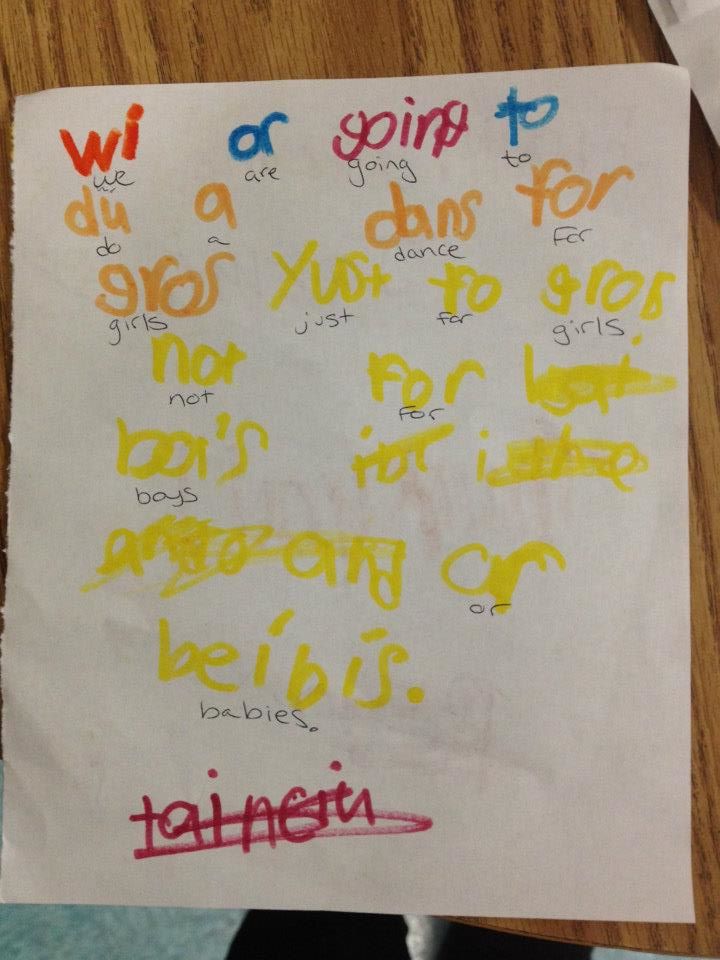 wi or going to
we are going to
du a dans for
do a dance for
gros Yust fo gros
girls just for girls
not for
not for
boi's
boys
or
or
beibis.
babies.